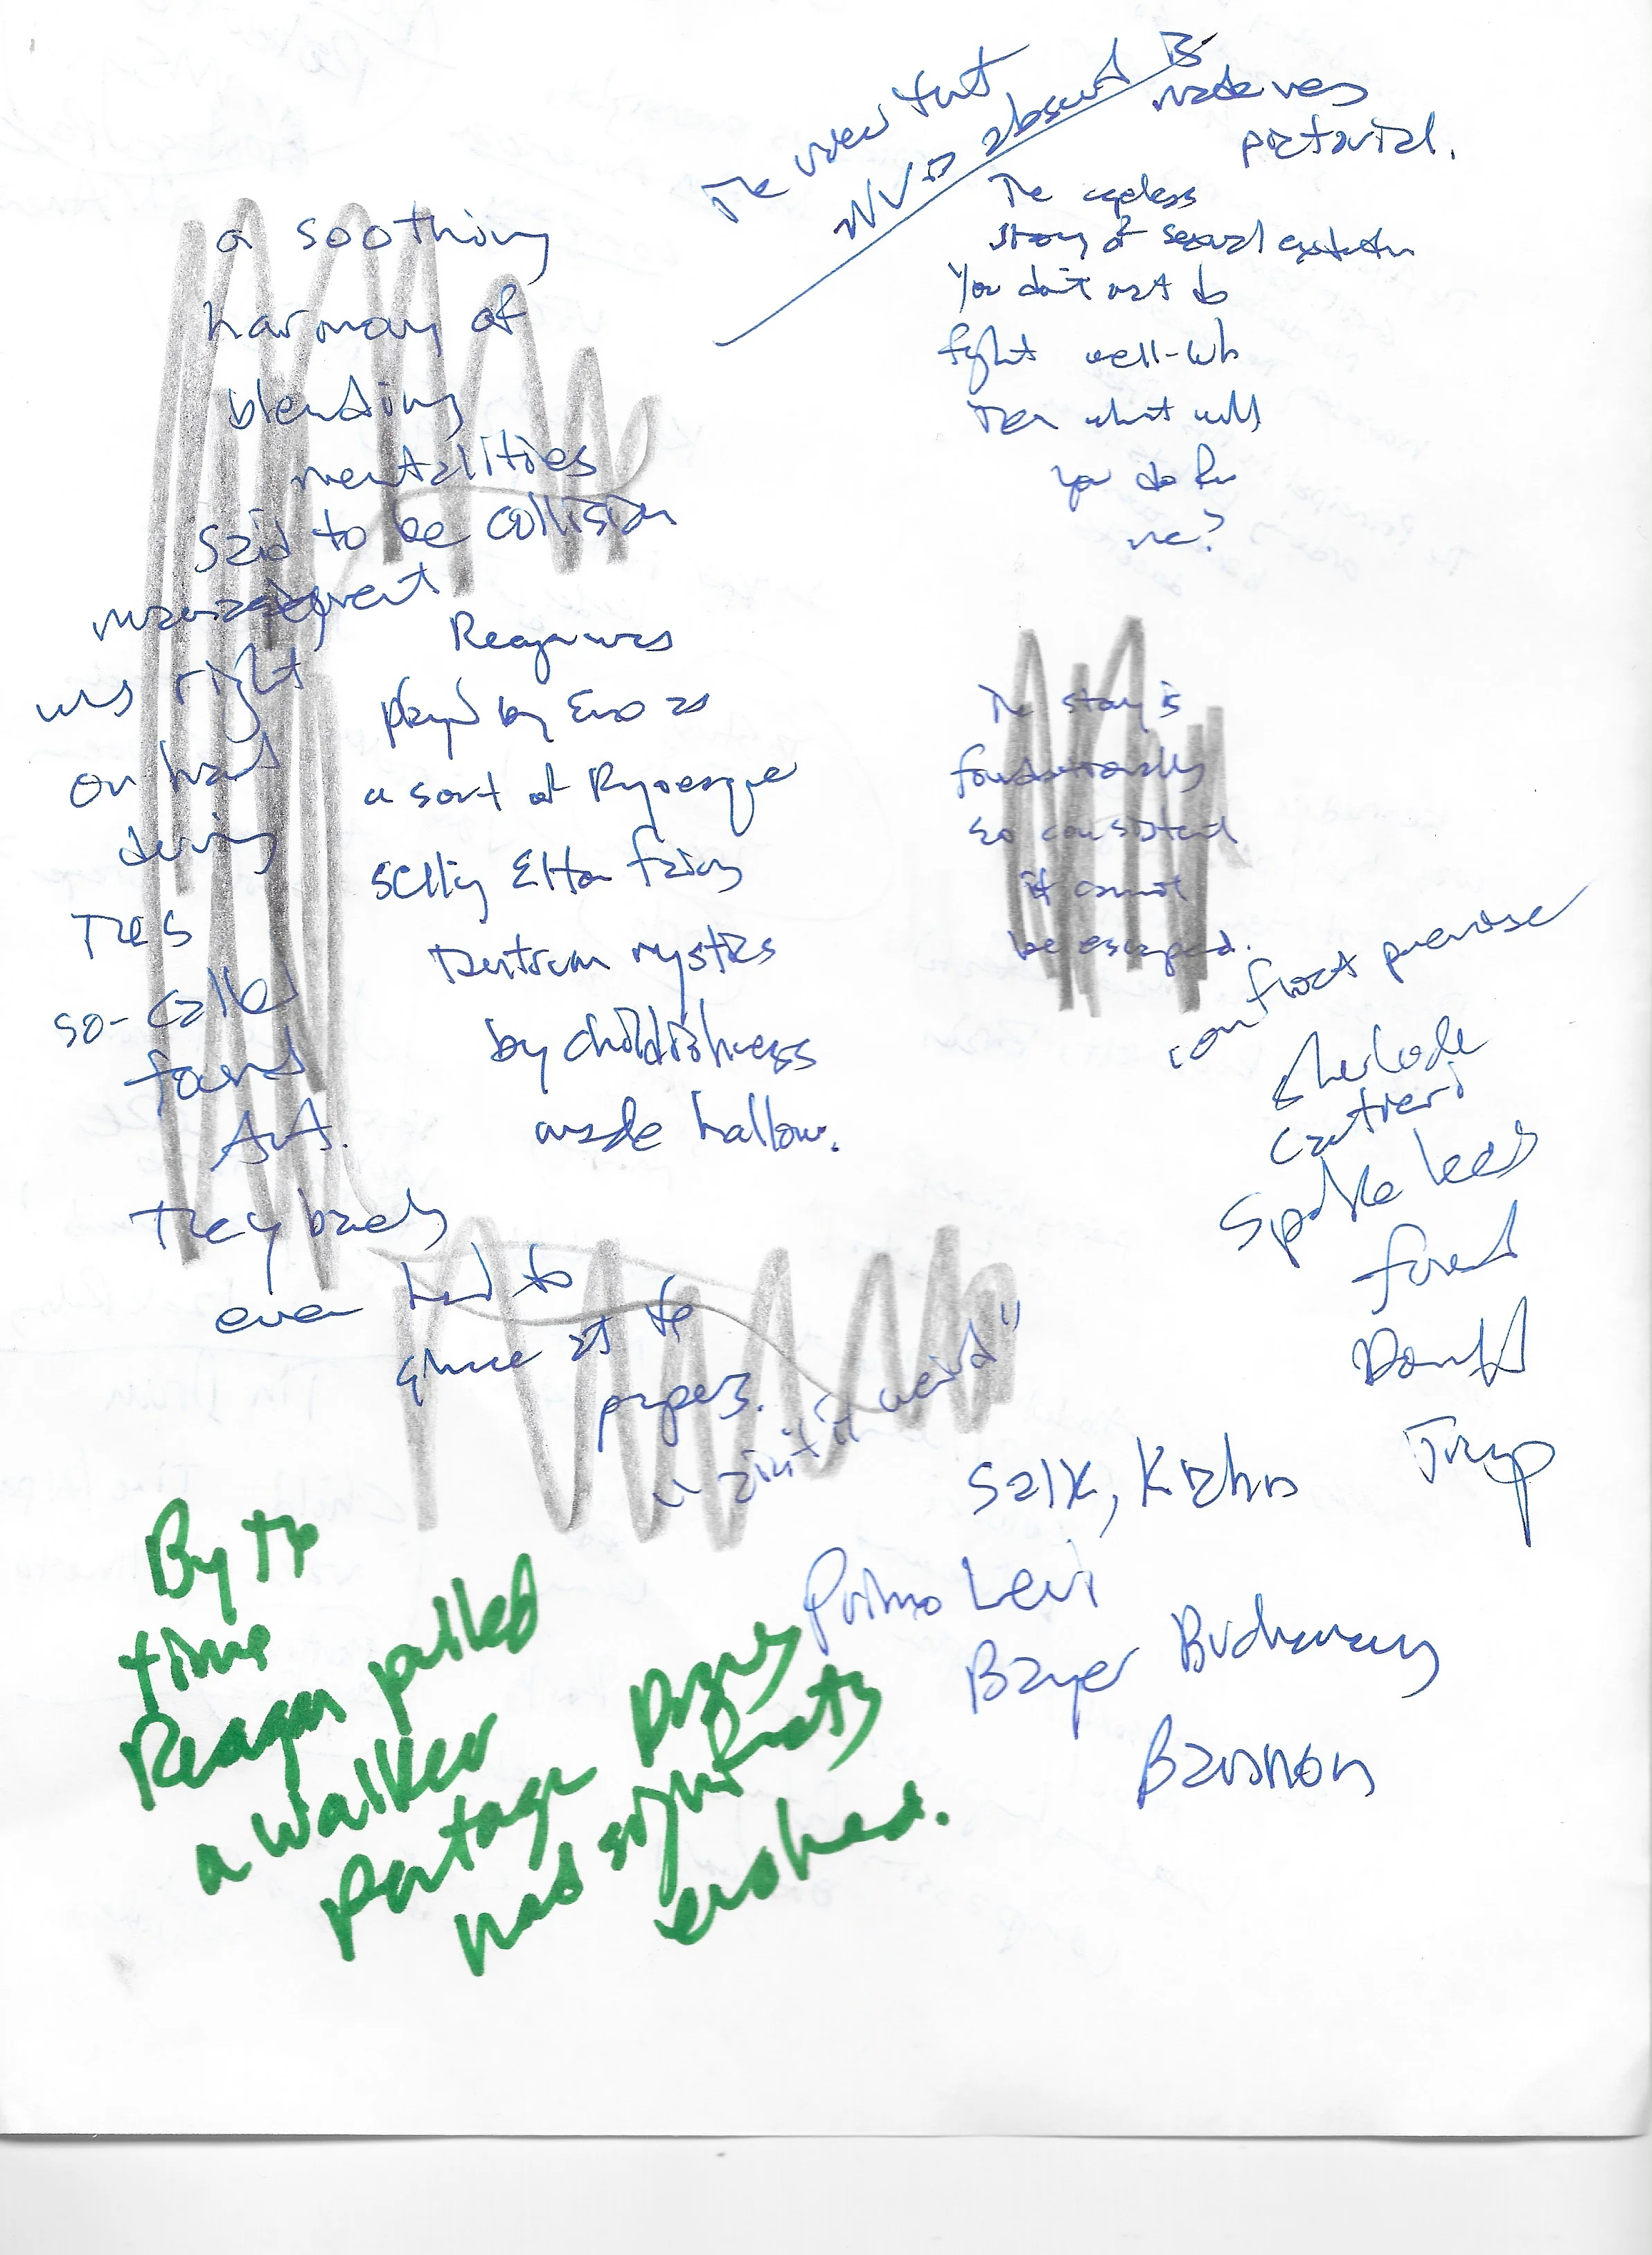 a soothing
harmony of
blending
mentalities
said to be collision
management
was right
on hand
during
this
so-called
found
Art.
They barely
even had to
glance at the
papers.
"ain't it weird"
The view that
absent is
made was
pictorial.
The ageless
story of sexual
You don't want to
fight well-Who
Then what will
you do for
me?
Reagan was
played by Eno as
a sort of
selling Elton fairy
tantrum mystics
by childishness
made hallow.
The story is
foundationally
so consistent
it cannot
be escaped.
conflict premise
Cartier
Spike Lee
found
Donald
Trump
Salk,
Primo Levi
Bayer Buchanan
Bannon
By the
time
Reagan pulled
a Walker
Percy
had significantly
evolved.